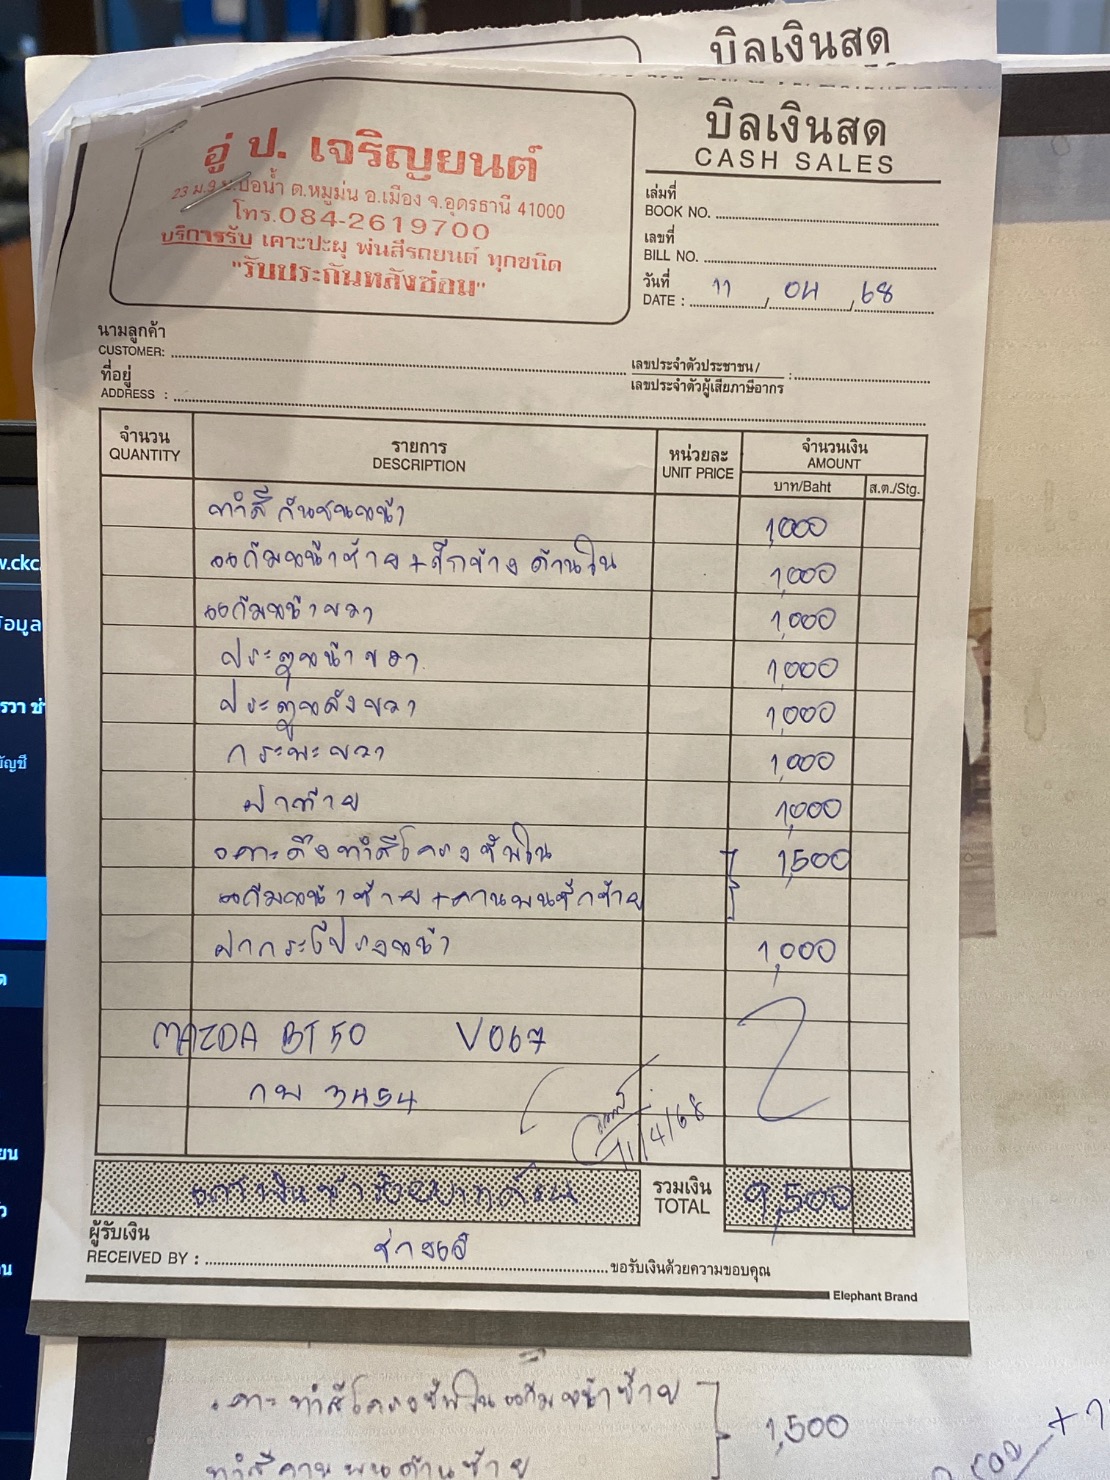 บิลเงินสด
อู่ ป. เจริญยนต์
23 ม.9 บ.บ่อน้ำ ต.หมูม่น อ.เมือง จ.อุดรธานี 41000
โทร.084-2619700
บริการรับ เคาะปะผุ พ่นสีรถยนต์ ทุกชนิด
"รับประกันหลังซ่อม"
บิลเงินสด
CASH SALES
เล่มที่
BOOK NO.
เลขที่
BILL NO.
วันที่
DATE : 11 / 04 / 68
นามลูกค้า
CUSTOMER:
เลขประจำตัวประชาชน /
เลขประจำตัวผู้เสียภาษีอากร :
ที่อยู่
ADDRESS :
จำนวน รายการ หน่วยละ จำนวนเงิน
QUANTITY DESCRIPTION UNIT PRICE AMOUNT
บาท/Baht ส.ต./Stg.
ทำสี กันชนหน้า 1,000
แก้มหน้าซ้าย + ซีกข้าง ด้านใน 1,000
แก้มหน้าขวา 1,000
ประตูหน้าขวา 1,000
ประตูหลังขวา 1,000
กระบะขวา 1,000
ฝาท้าย 1,000
เคาะดึงทำสีโครงชั้นใน 1,500
แก้มหน้าซ้าย + คานบนซีกซ้าย
ฝากระโปรงหน้า 1,000
MAZDA BT50 V067
กพ 3454
11/4/68
เก้าพันห้าร้อยบาทถ้วน
รวมเงิน
TOTAL 9,500
ผู้รับเงิน
RECEIVED BY : ขอรับเงินด้วยความขอบคุณ
Elephant Brand
เคาะทำสีโครงชั้นในแก้มหน้าซ้าย 1,500
ทำสีคานบนด้านซ้าย